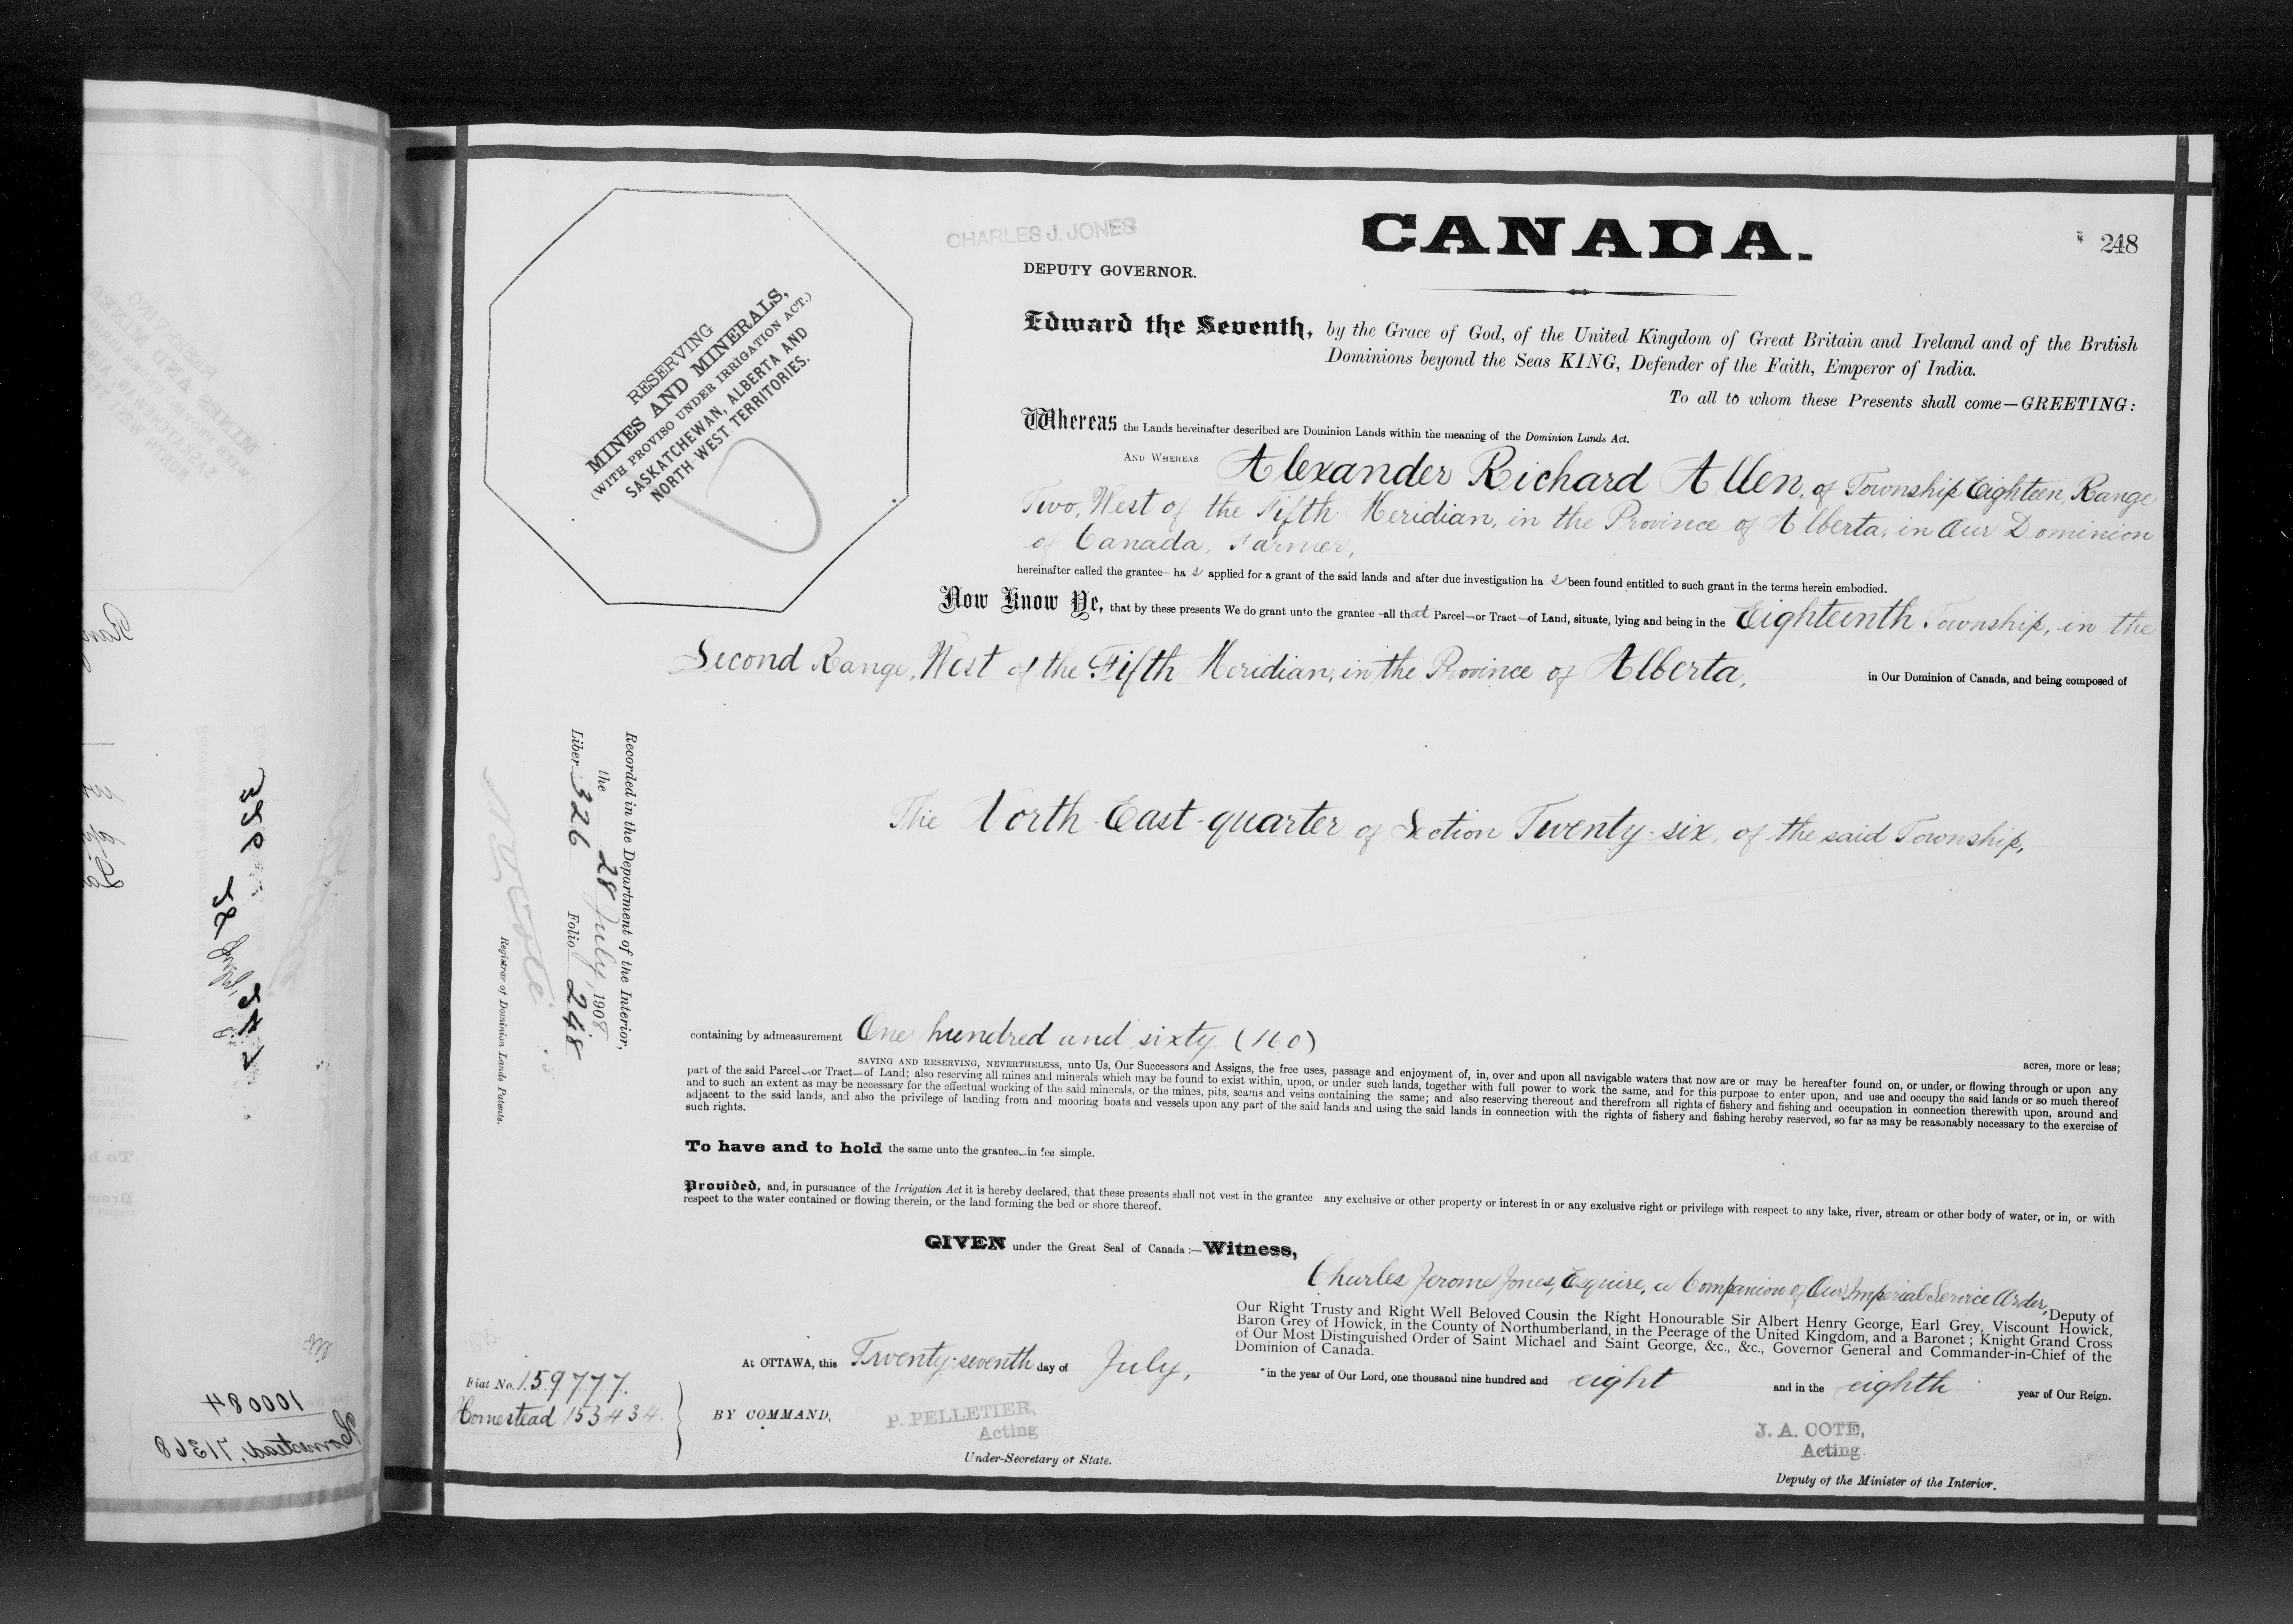 CHARLES J. JONES
DEPUTY GOVERNOR.
CANADA.
248
RESERVING
MINES AND MINERALS,
(WITH PROVISO UNDER IRRIGATION ACT.)
SASKATCHEWAN, ALBERTA AND
NORTH-WEST TERRITORIES.
Edward the Seventh, by the Grace of God, of the United Kingdom of Great Britain and Ireland and of the British
Dominions beyond the Seas KING, Defender of the Faith, Emperor of India.
To all to whom these Presents shall come—GREETING:
Whereas the Lands hereinafter described are Dominion Lands within the meaning of the Dominion Lands Act.
AND WHEREAS Alexander Richard Allen, of Township Eighteen, Range
Two, West of the Fifth Meridian, in the Province of Alberta, in Our Dominion
of Canada, Farmer,
hereinafter called the grantee has applied for a grant of the said lands and after due investigation has been found entitled to such grant in the terms herein embodied.
Now Know Ye, that by these presents We do grant unto the grantee all that Parcel or Tract of Land, situate, lying and being in the Eighteenth Township, in the
Second Range, West of the Fifth Meridian, in the Province of Alberta, in Our Dominion of Canada, and being composed of
The North-East-quarter of Section Twenty-six, of the said Township,
Recorded in the Department of the Interior,
the 28 July, 1908
Liber 326 Folio 248
Registrar of Dominion Lands Patents.
containing by admeasurement One hundred and sixty (160)
acres, more or less;
SAVING AND RESERVING, NEVERTHELESS, unto Us, Our Successors and Assigns, the free uses, passage and enjoyment of, in, over and upon all navigable waters that now are or may be hereafter found on, or under, or flowing through or upon any
part of the said Parcel or Tract of Land; also reserving all mines and minerals which may be found to exist within, upon, or under such lands, together with full power to work the same, and for this purpose to enter upon, and use and occupy the said lands or so much thereof
and to such an extent as may be necessary for the effectual working of the said minerals, or the mines, pits, seams and veins containing the same; and also reserving thereout and therefrom all rights of fishery and fishing and occupation in connection therewith upon, around and
adjacent to the said lands, and also the privilege of landing from and mooring boats and vessels upon any part of the said lands and using the said lands in connection with the rights of fishery and fishing hereby reserved, so far as may be reasonably necessary to the exercise of
such rights.
To have and to hold the same unto the grantee in fee simple.
Provided, and, in pursuance of the Irrigation Act it is hereby declared, that these presents shall not vest in the grantee any exclusive or other property or interest in or any exclusive right or privilege with respect to any lake, river, stream or other body of water, or in, or with
respect to the water contained or flowing therein, or the land forming the bed or shore thereof.
GIVEN under the Great Seal of Canada :—Witness,
Charles Jerome Jones, Esquire, a Companion of Our Imperial Service Order, Deputy of
Our Right Trusty and Right Well Beloved Cousin the Right Honourable Sir Albert Henry George, Earl Grey, Viscount Howick,
Baron Grey of Howick, in the County of Northumberland, in the Peerage of the United Kingdom, and a Baronet; Knight Grand Cross
of Our Most Distinguished Order of Saint Michael and Saint George, &c., &c., Governor General and Commander-in-Chief of the
Dominion of Canada.
At OTTAWA, this Twenty-seventh day of July, in the year of Our Lord, one thousand nine hundred and eight and in the eighth year of Our Reign.
Fiat No. 159777.
Homestead 153434.
BY COMMAND,
P. PELLETIER,
Acting
Under-Secretary of State.
J. A. COTE,
Acting
Deputy of the Minister of the Interior.
100084
Homestead, 71368